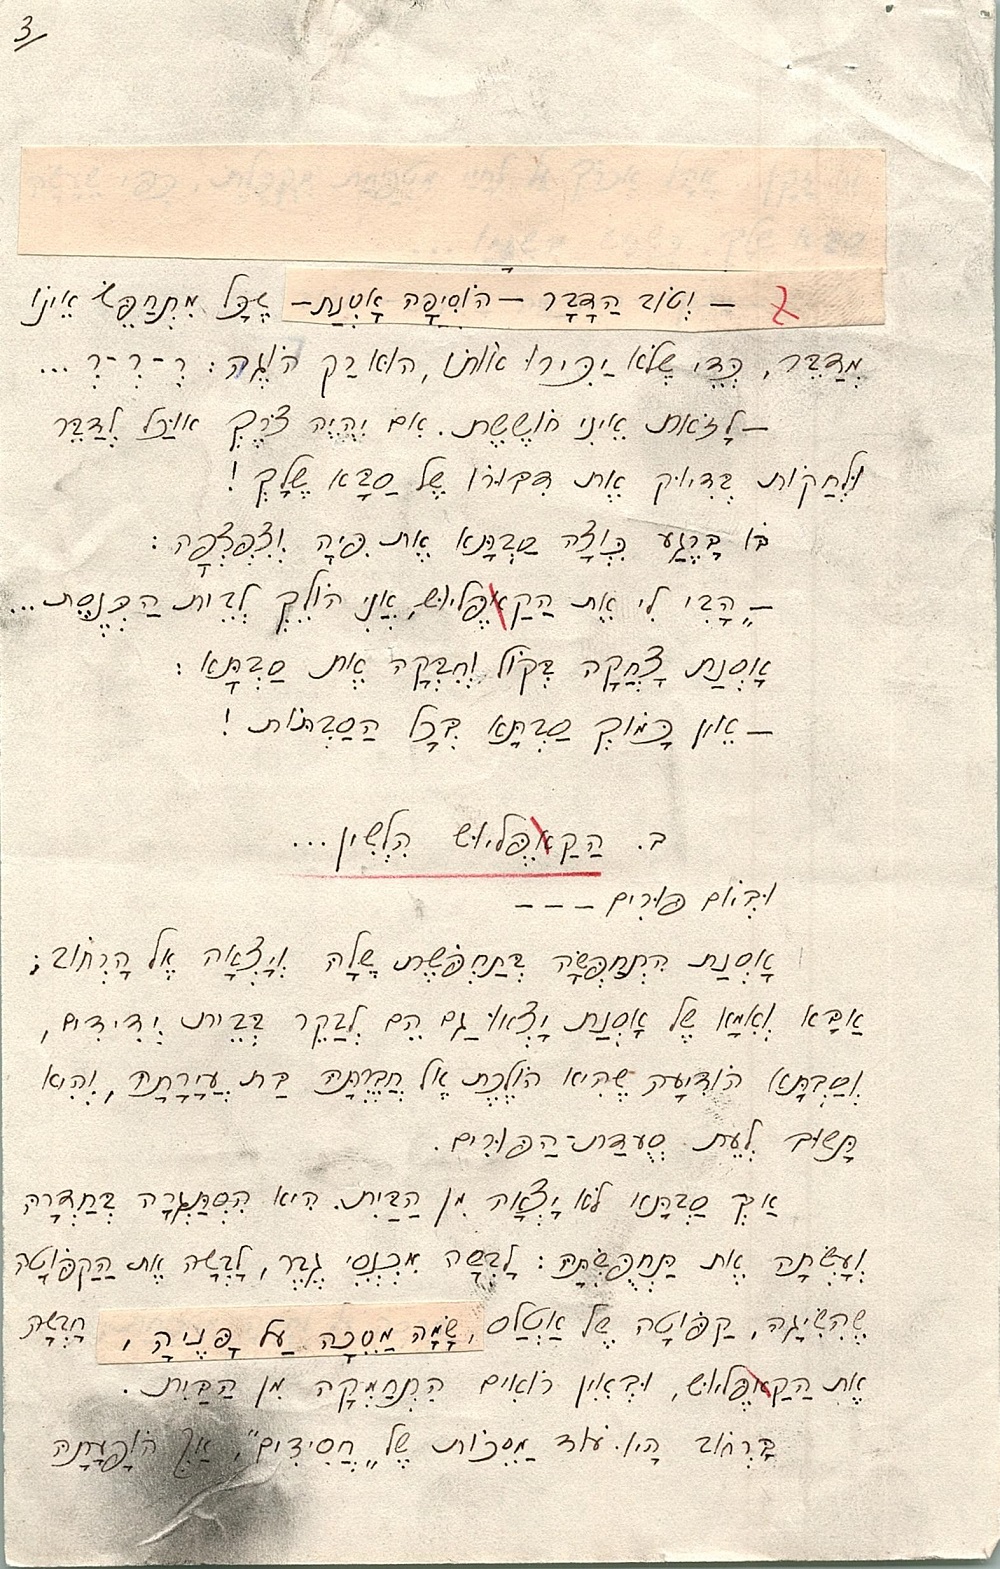 3/
– וְטוֹב הַדָּבָר – הוֹסִיפָה אָסְנַת – שֶׁכָּל מִתְחַפֵּשׂ אֵינוֹ
מְדַבֵּר, כְּדֵי שֶׁלֹּא יַכִּירוּ אוֹתוֹ, הוּא רַק הוֹגֶה: רְ-רְ-רְ ...
– לָזֹאת אֵינִי חוֹשֶׁשֶׁת. אִם יִהְיֶה צֹרֶךְ אוּכַל לְדַבֵּר
וּלְחַקּוֹת בְּדִיּוּק אֶת דִּבּוּרוֹ שֶׁל סַבָּא שֶׁלָּךְ!
בּוֹ בָּרֶגַע כִּוְּצָה סַבְתָּא אֶת פִּיהָ וְצִפְצְפָה:
– הָבִי לִי אֶת הַקַאפֶּלְיוּשׁ, אֲנִי הוֹלֵךְ לְבֵית הַכְּנֶסֶת...
אָסְנַת צָחֲקָה בְּקוֹל וְחִבְּקָה אֶת סַבְתָּא:
– אֵין כָּמוֹךְ סַבְתָּא בְּכָל הַסַּבְתּוֹת!
ב. הַקַאפֶּלְיוּשׁ הִלְשִׁין...
וּבְיוֹם פּוּרִים – – –
אָסְנַת הִתְחַפְּשָׂה בְּתַחְפֹּשֶׂת שֶׁלָּהּ וְיָצְאָה אֶל הָרְחוֹב;
אַבָּא וְאִמָּא שֶׁל אָסְנַת יָצְאוּ גַּם הֵם לְבַקֵּר בְּבֵית יְדִידִים,
וְסַבְתָּא הוֹדִיעָה שֶׁהִיא הוֹלֶכֶת אֶל חֲבֶרְתָּהּ בַּת עֲיָרָתָהּ, וְהִיא
תָּשׁוּב לְעֵת סְעֻדַּת-הַפּוּרִים.
אַךְ סַבְתָּא לֹא יָצְאָה מִן הַבַּיִת. הִיא הִסְתַּגְּרָה בְּחַדְרָהּ
וְעָשְׂתָה אֶת תַּחְפֻּשְׂתָּהּ: לָבְשָׁה מִכְנְסֵי גֶּבֶר, לָבְשָׁה אֶת הַקַּפּוֹטָה
שֶׁהִשִּׂיגָה, קַפּוֹטָה שֶׁל אַטְלַס, שָׂמָה מַסֵּכָה עַל פָּנֶיהָ, חָבְשָׁה
אֶת הַקַאפֶּלְיוּשׁ, וּבְאֵין רוֹאִים הִתְחַמְּקָה מִן הַבַּיִת.
בָּרְחוֹב הָיוּ עוֹד מַסֵּכוֹת שֶׁל „חֲסִידִים", אַךְ הוֹפָעָתָהּ